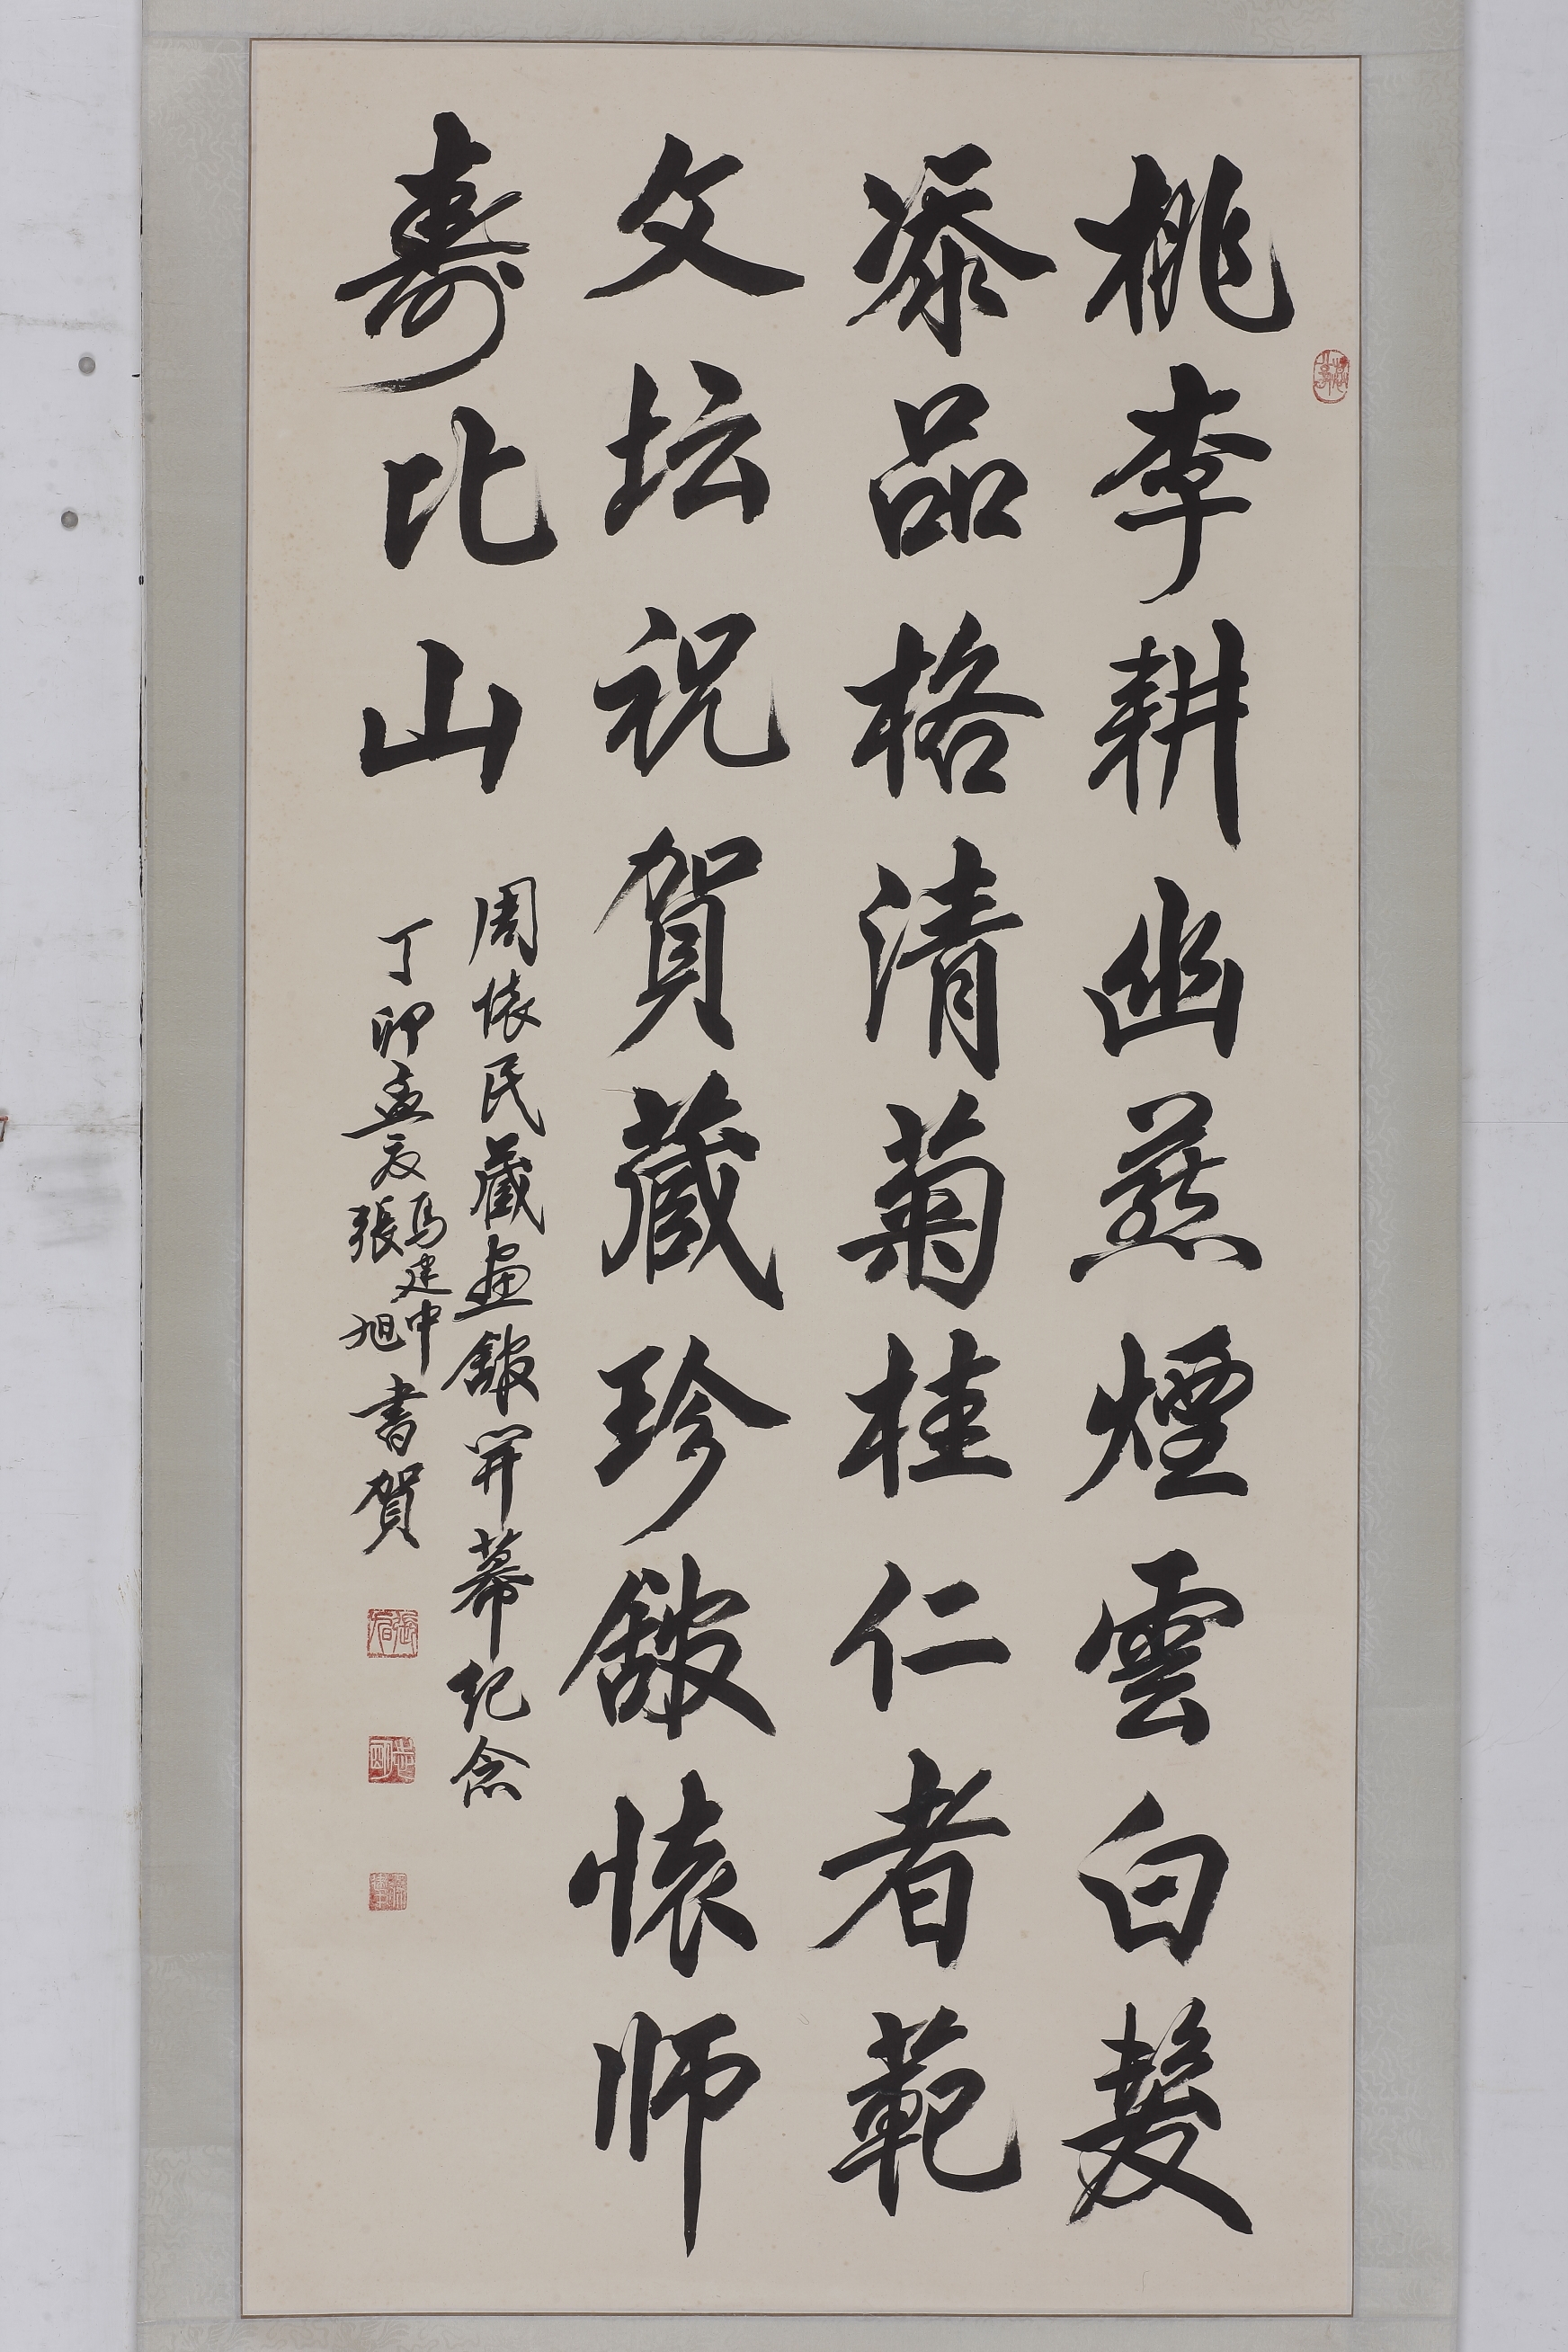 桃李耕幽燕煙雲白髮
添品格清菊桂仁者範
文坛祝賀藏珍館懷師
壽比山
周懷民藏畫館開幕紀念
丁卯孟夏
馬建中
張旭
書賀